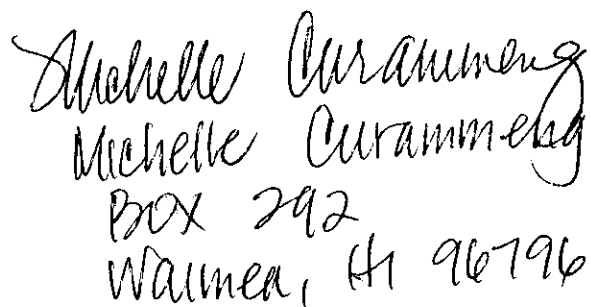 Michelle Curammeng
Michelle Curammeng
Box 292
Waimea, HI 96796